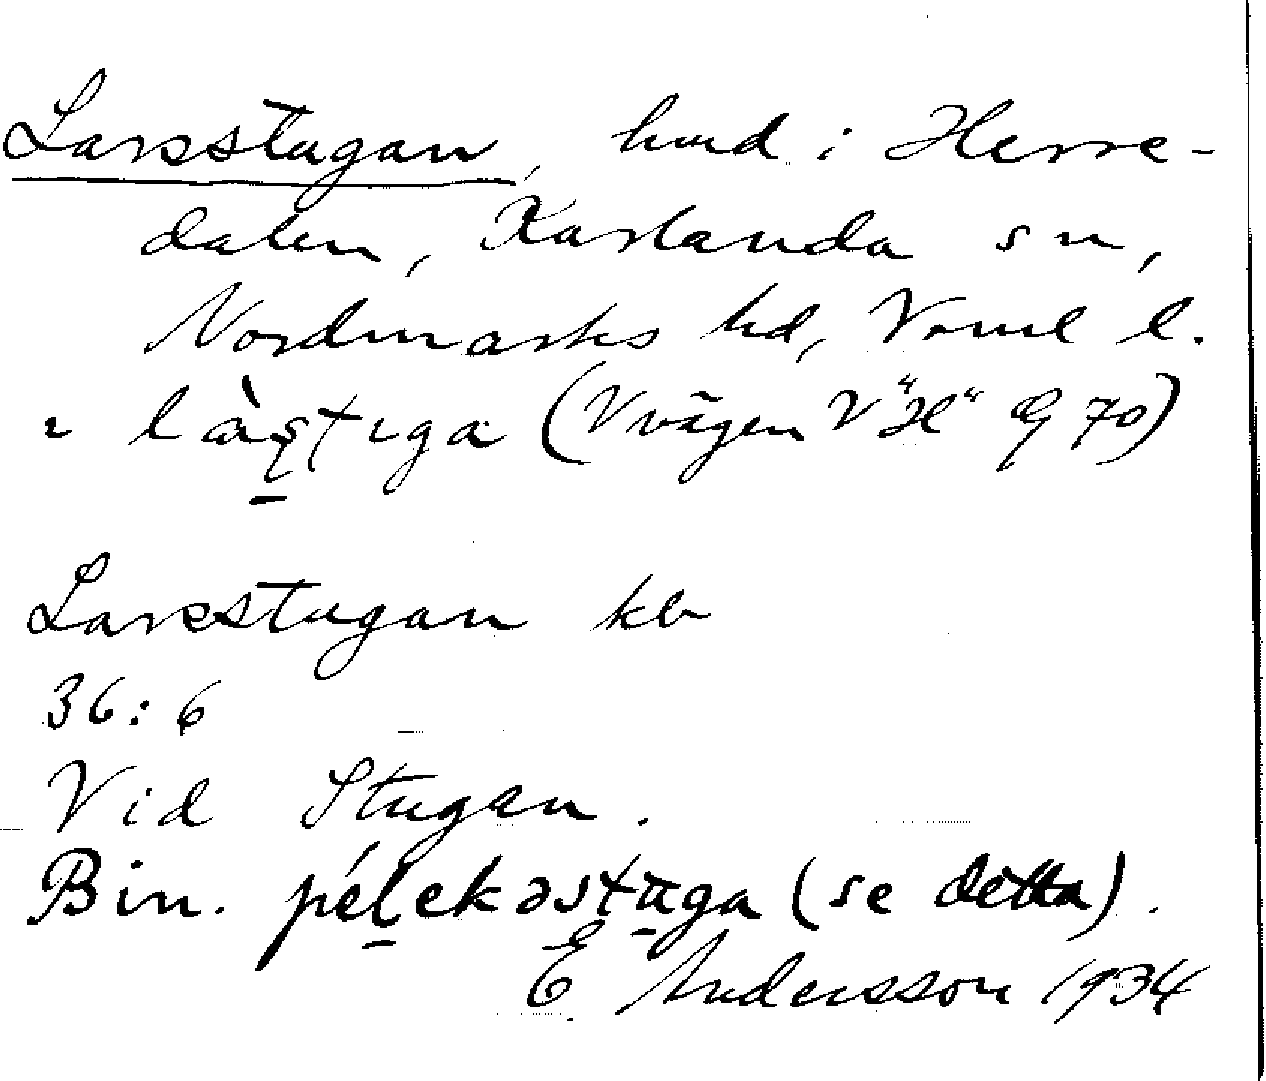 Larsstugan, hmd i Herre-
dalen, Karlanda sn,
Nordmarks hd, Värml l.
ı là̀ʂtuga (Vvägen V "H" Eg 70)
Larsstugan kb
36:6
Vid Stugan.
Bin. pélekəstuga (se detta).
E Andersson 1934